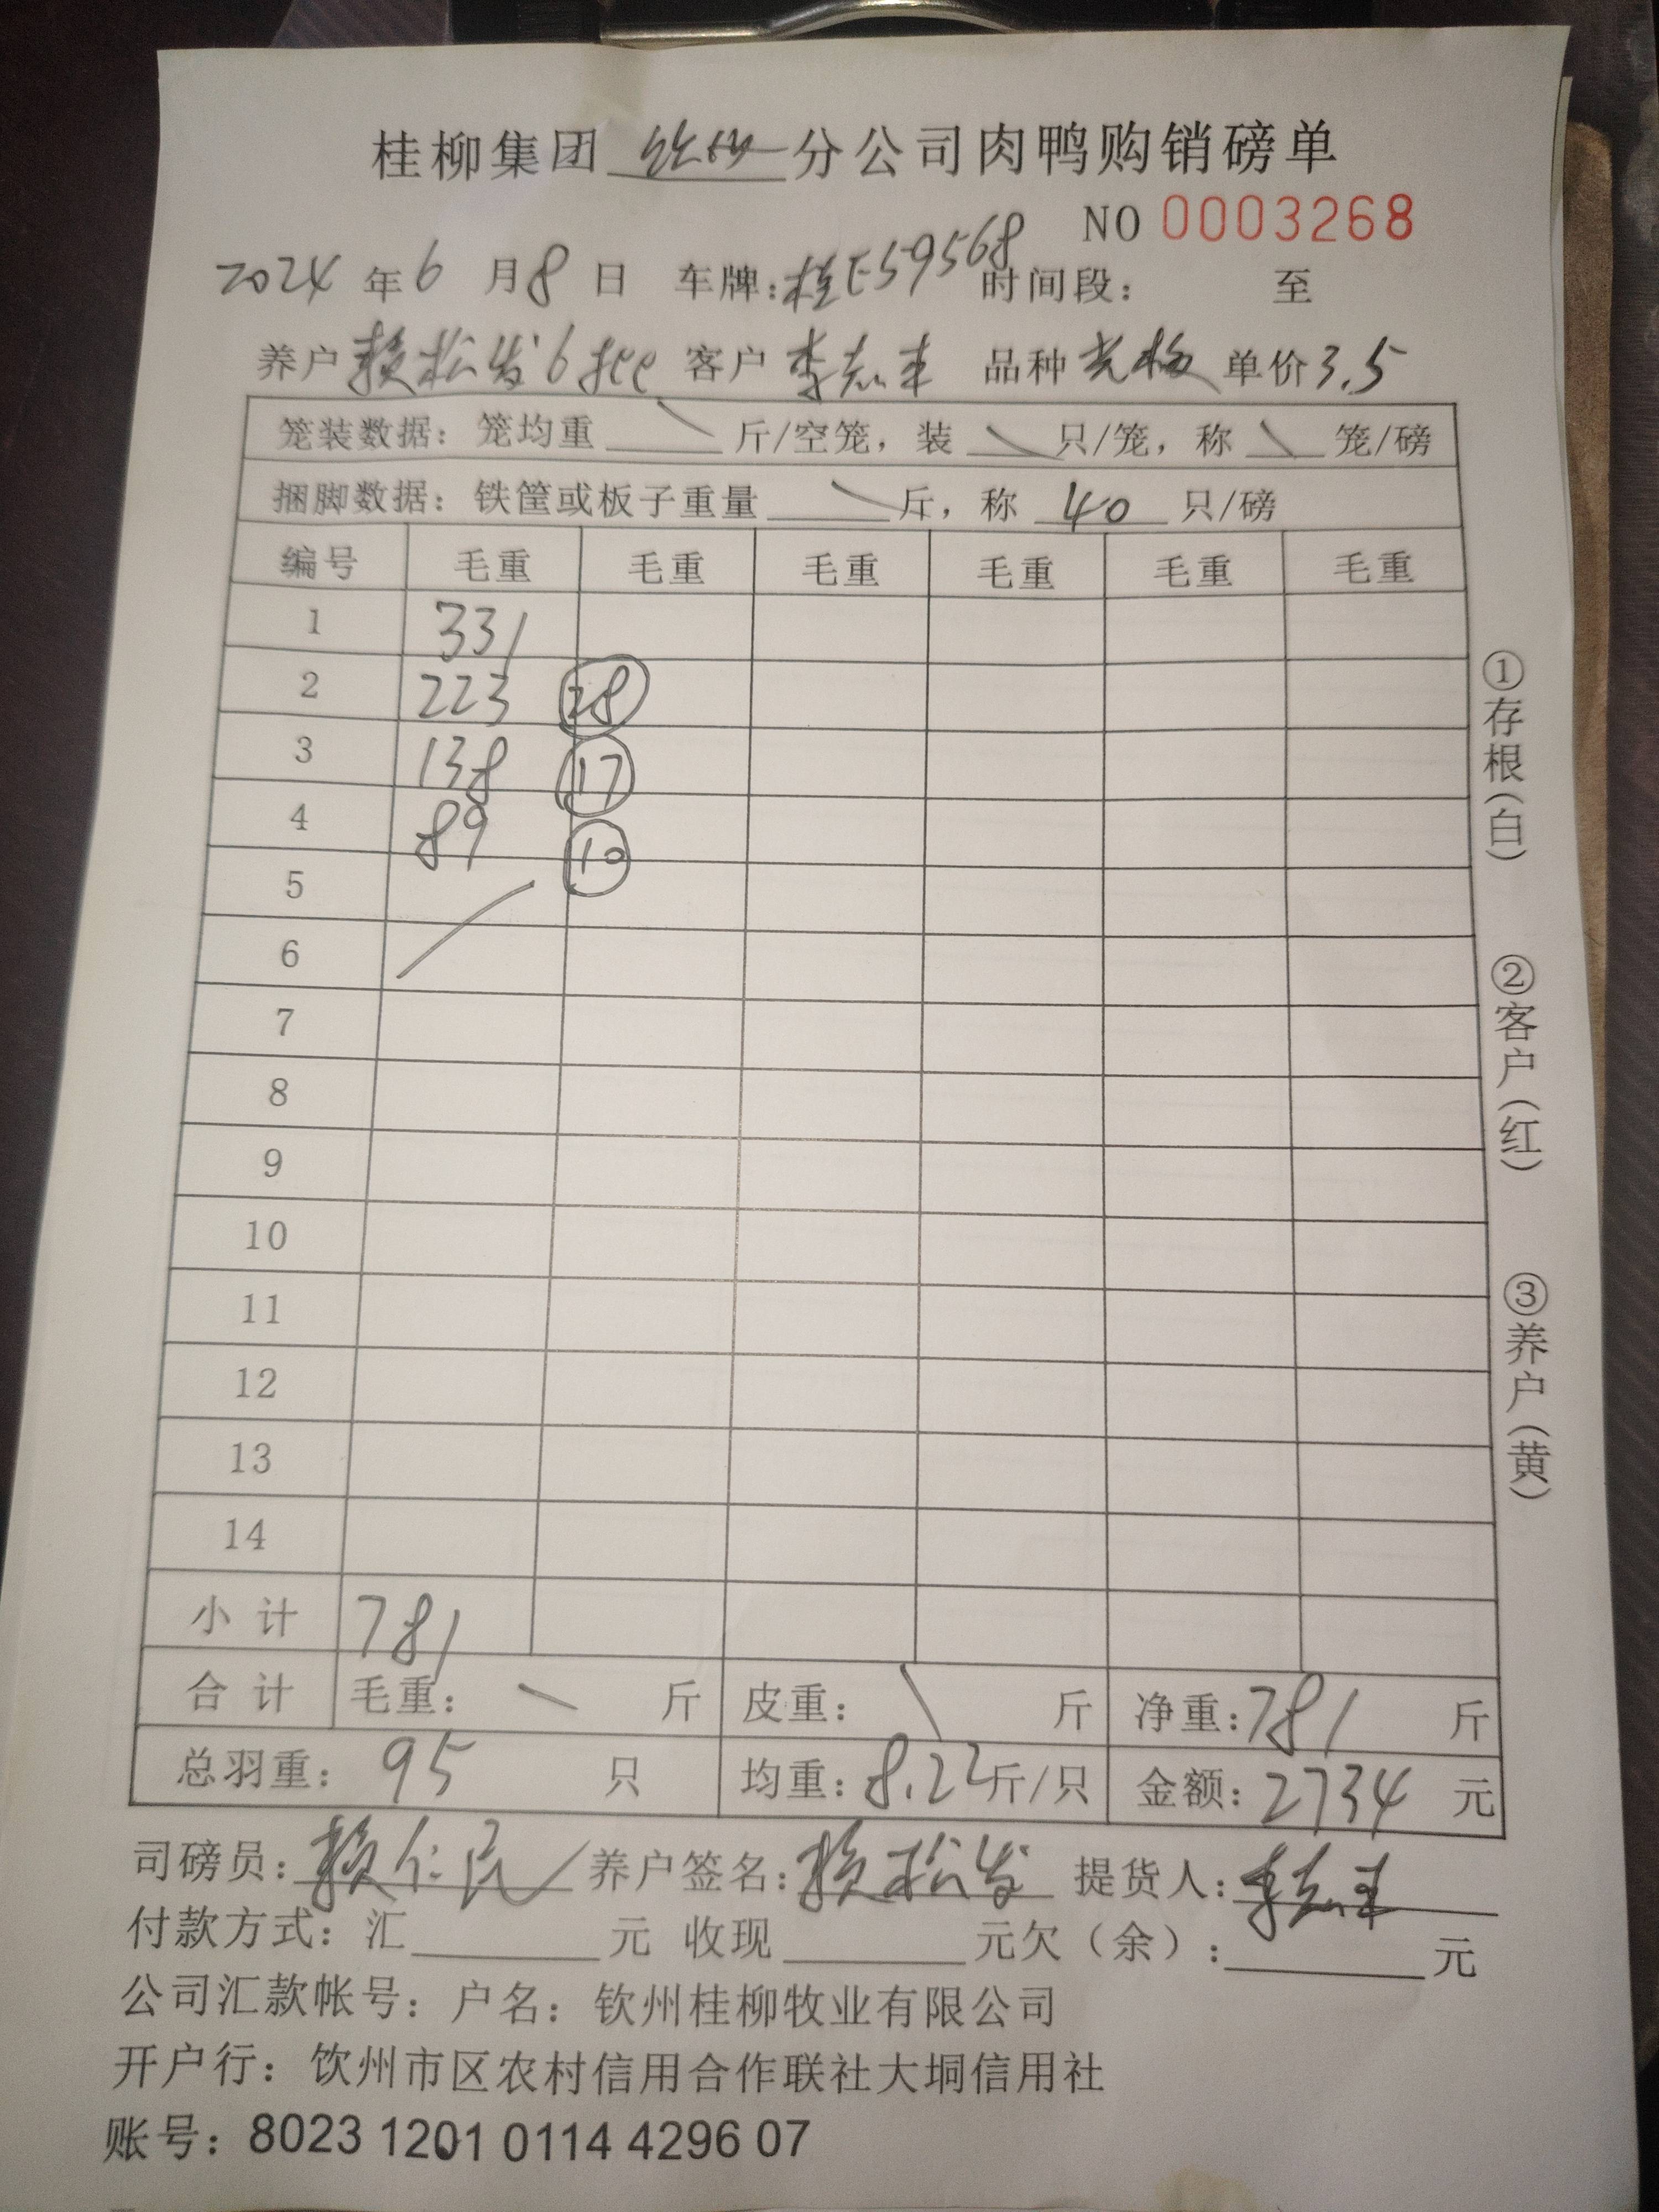 桂柳集团 钦州 分公司肉鸭购销磅单
NO 0003268
2024 年 6 月 8 日 车牌：桂E59568 时间段： 至
养户 赖松发6批 客户 李志丰 品种 单价 3.5
笼装数据：笼均重 \ 斤/空笼，装 \ 只/笼，称 \ 笼/磅
捆脚数据：铁筐或板子重量 \ 斤，称 40 只/磅
编号 毛重 毛重 毛重 毛重 毛重 毛重
1 331
2 223 28
3 138 17
4 89 10
5
6
7
8
9
10
11
12
13
14
小计 781
合计 毛重： 斤 皮重： \ 斤 净重：781 斤
总羽重：95 只 均重：8.22斤/只 金额：2734 元
司磅员：赖仁民 养户签名：赖松发 提货人：李志丰
付款方式：汇 元 收现 元欠（余）： 元
公司汇款帐号：户名：钦州桂柳牧业有限公司
开户行：饮州市区农村信用合作联社大垌信用社
账号：8023 1201 0114 4296 07
①存根（白） ②客户（红） ③养户（黄）